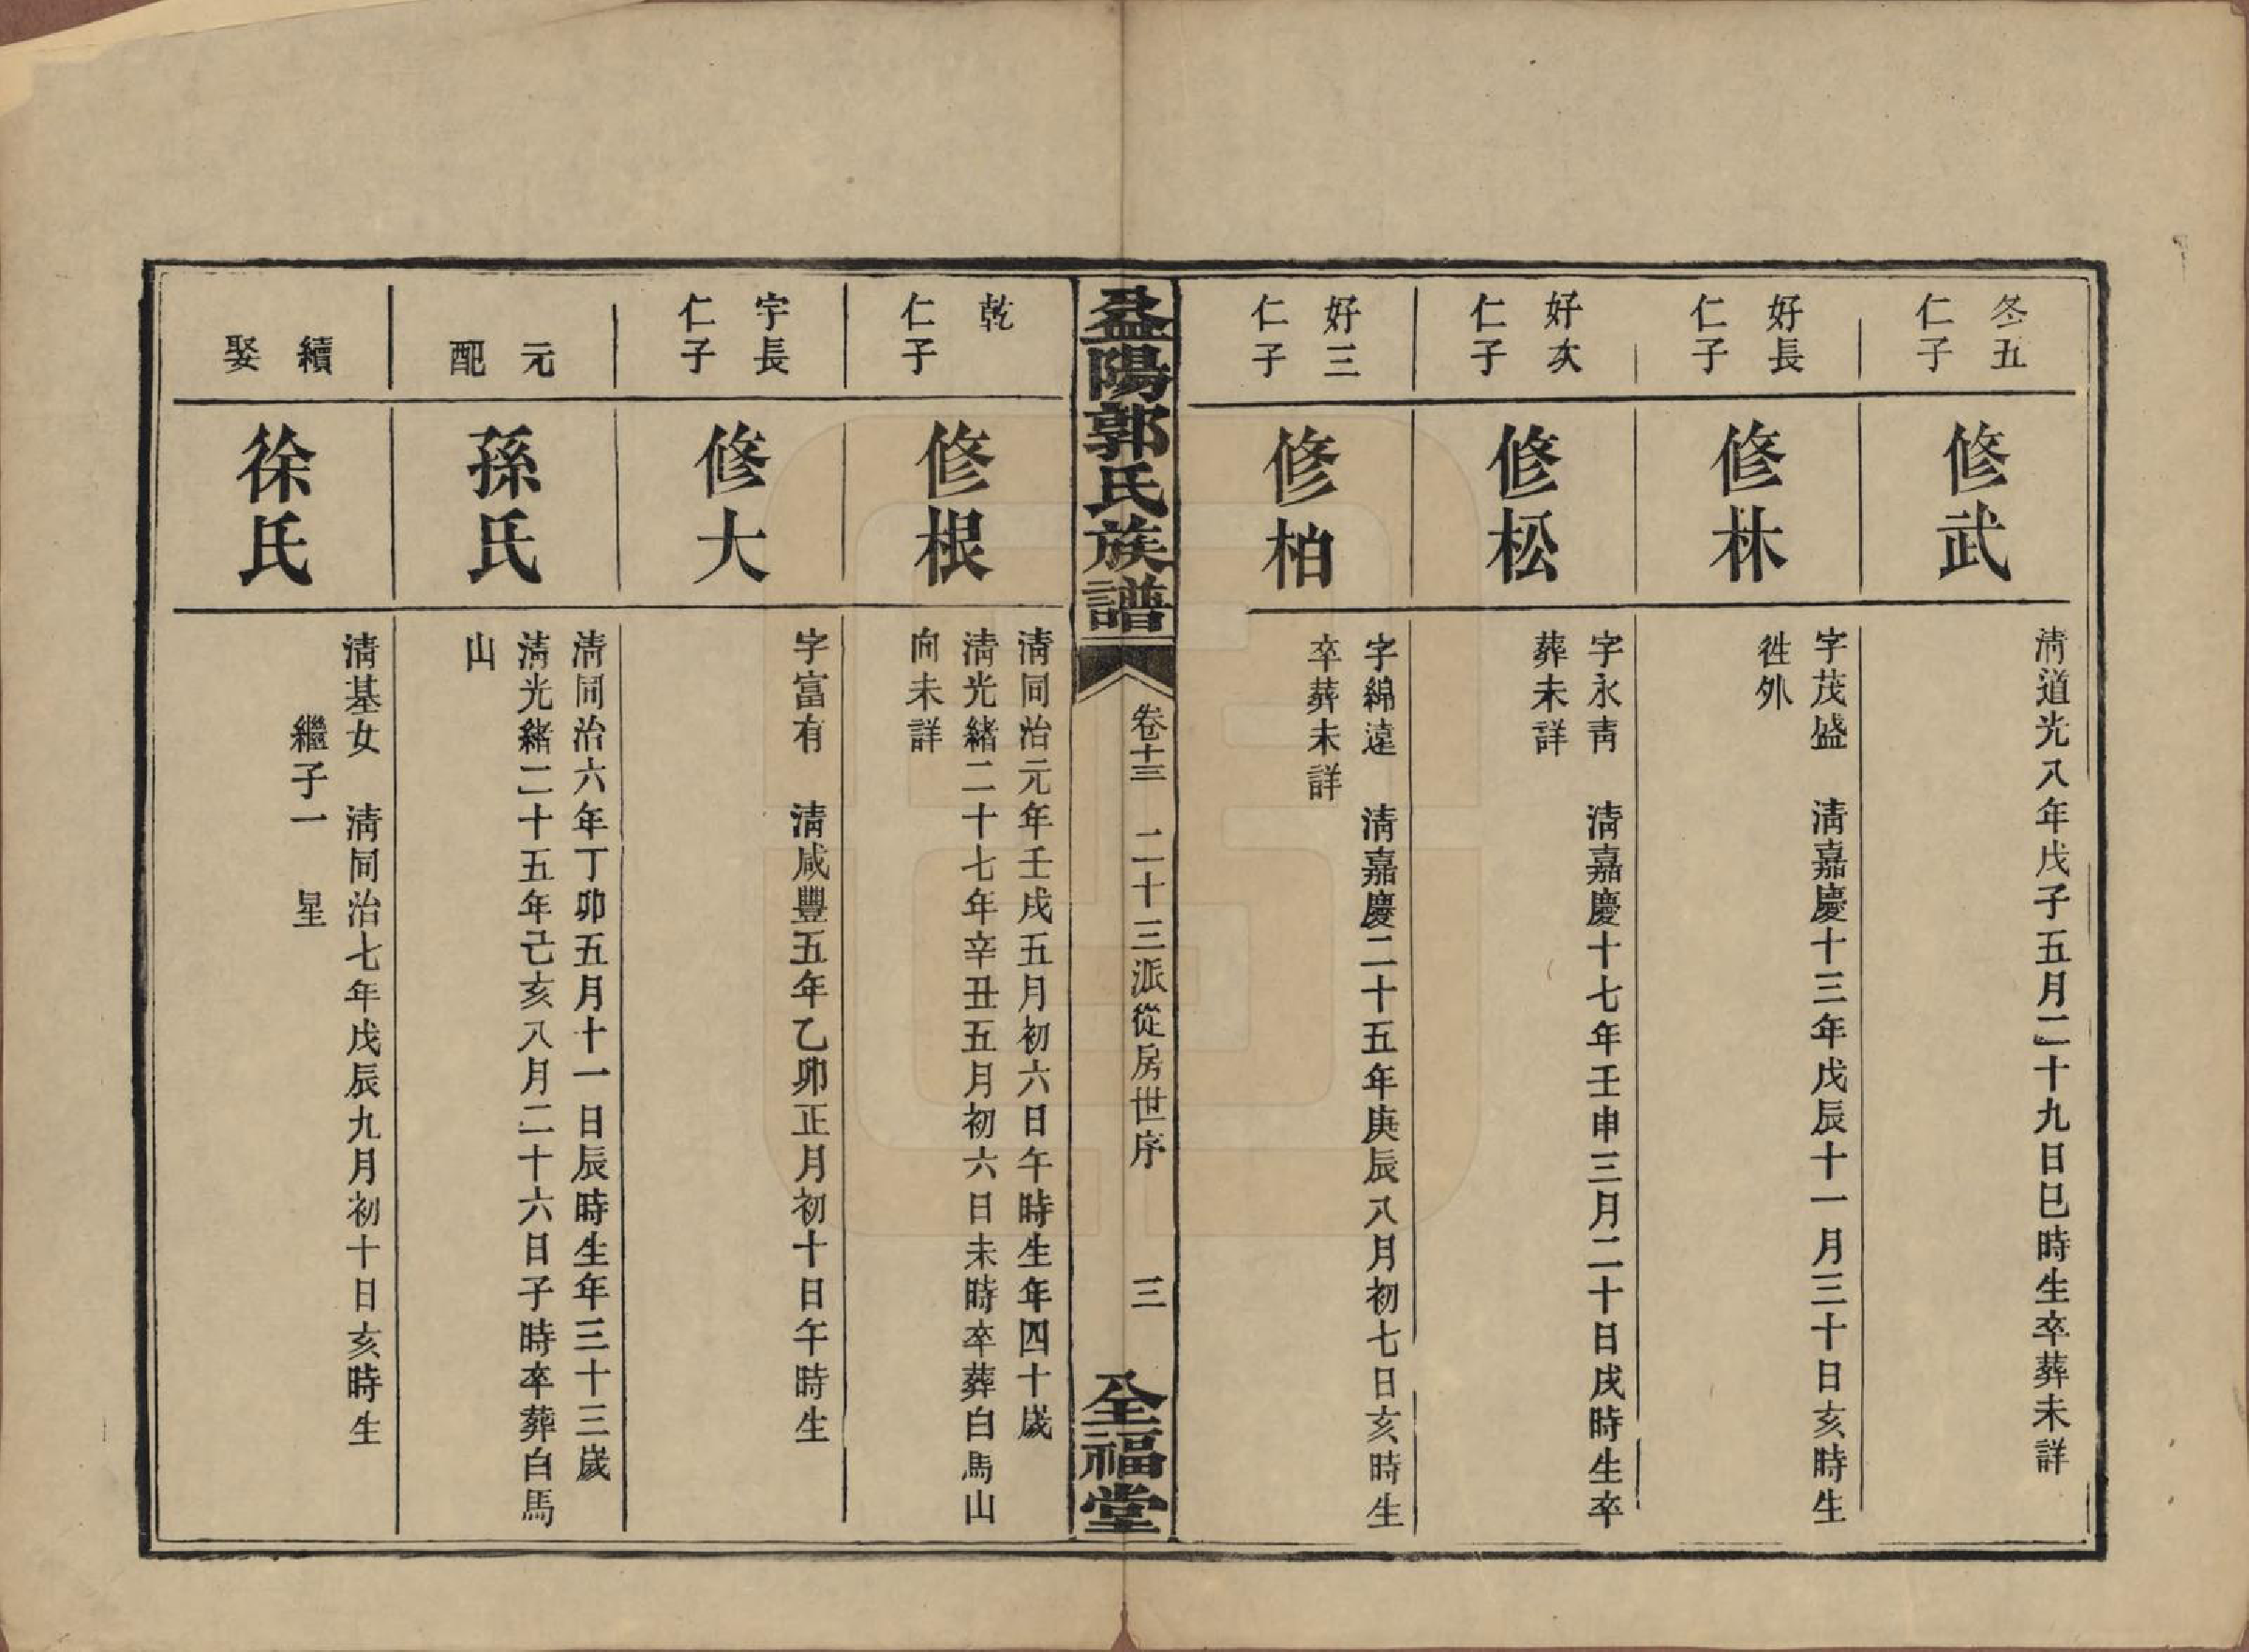 冬五
仁子
修武
清道光八年戊子五月二十九日巳時生卒葬未詳
好長
仁子
修林
字茂盛　清嘉慶十三年戊辰十一月三十日亥時生
徃外
好次
仁子
修松
字永靑　清嘉慶十七年壬申三月二十日戌時生卒
葬未詳
好三
仁子
修柏
字綿遠　清嘉慶二十五年庚辰八月初七日亥時生
卒葬未詳
益陽郭氏族譜
卷十三　二十三派從房世序　三
全福堂
乾
仁子
修根
清同治元年壬戌五月初六日午時生年四十歲
清光緒二十七年辛丑五月初六日未時卒葬白馬山
向未詳
宇長
仁子
修大
字富有　清咸豐五年乙卯正月初十日午時生
元
配
孫氏
清同治六年丁卯五月十一日辰時生年三十三歲
清光緒二十五年己亥八月二十六日子時卒葬白馬
山
續
娶
徐氏
清基女　清同治七年戊辰九月初十日亥時生
繼子一　星